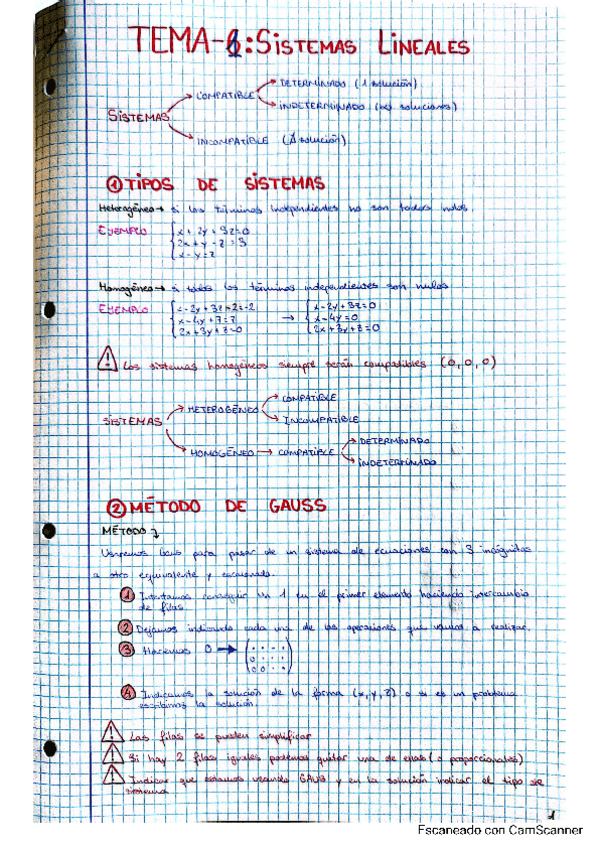 TEMA-1: SISTEMAS LINEALES
SISTEMAS
COMPATIBLE
DETERMINADO (1 solución)
INDETERMINADO (∞ soluciones)
INCOMPATIBLE (∄ solución)
① TIPOS DE SISTEMAS
Heterogéneo → si los términos independientes no son todos nulos.
EJEMPLO
x + 2y + 3z = 0
2x + y - z = 3
x - y = 2
Homogéneo → si todos los términos independientes son nulos
EJEMPLO
x - 2y + 3z + 2 = 2
x - 4y + 7 = 7
2x + 3y + z = 0
→
x - 2y + 3z = 0
x - 4y = 0
2x + 3y + z = 0
Los sistemas homogéneos siempre serán compatibles (0, 0, 0)
SISTEMAS
HETEROGÉNEO
COMPATIBLE
INCOMPATIBLE
HOMOGÉNEO → COMPATIBLE
DETERMINADO
INDETERMINADO
② MÉTODO DE GAUSS
MÉTODO
para pasar de un sistema de ecuaciones con 3 incógnitas
a otro equivalente y escalonado.
① Intentamos conseguir un 1 en el primer elemento haciendo intercambio
de filas.
② Dejamos indicado cada una de las operaciones que vamos a realizar.
③ Hacemos 0 →
④ Indicamos la solución de la forma (x, y, z) o si es un problema
escribimos la solución.
Las filas se pueden simplificar
Si hay 2 filas iguales podemos quitar una de ellas (o proporcionales)
Indicar que estamos usando GAUSS y en la solución indicar el tipo de
sistema
1
Escaneado con CamScanner